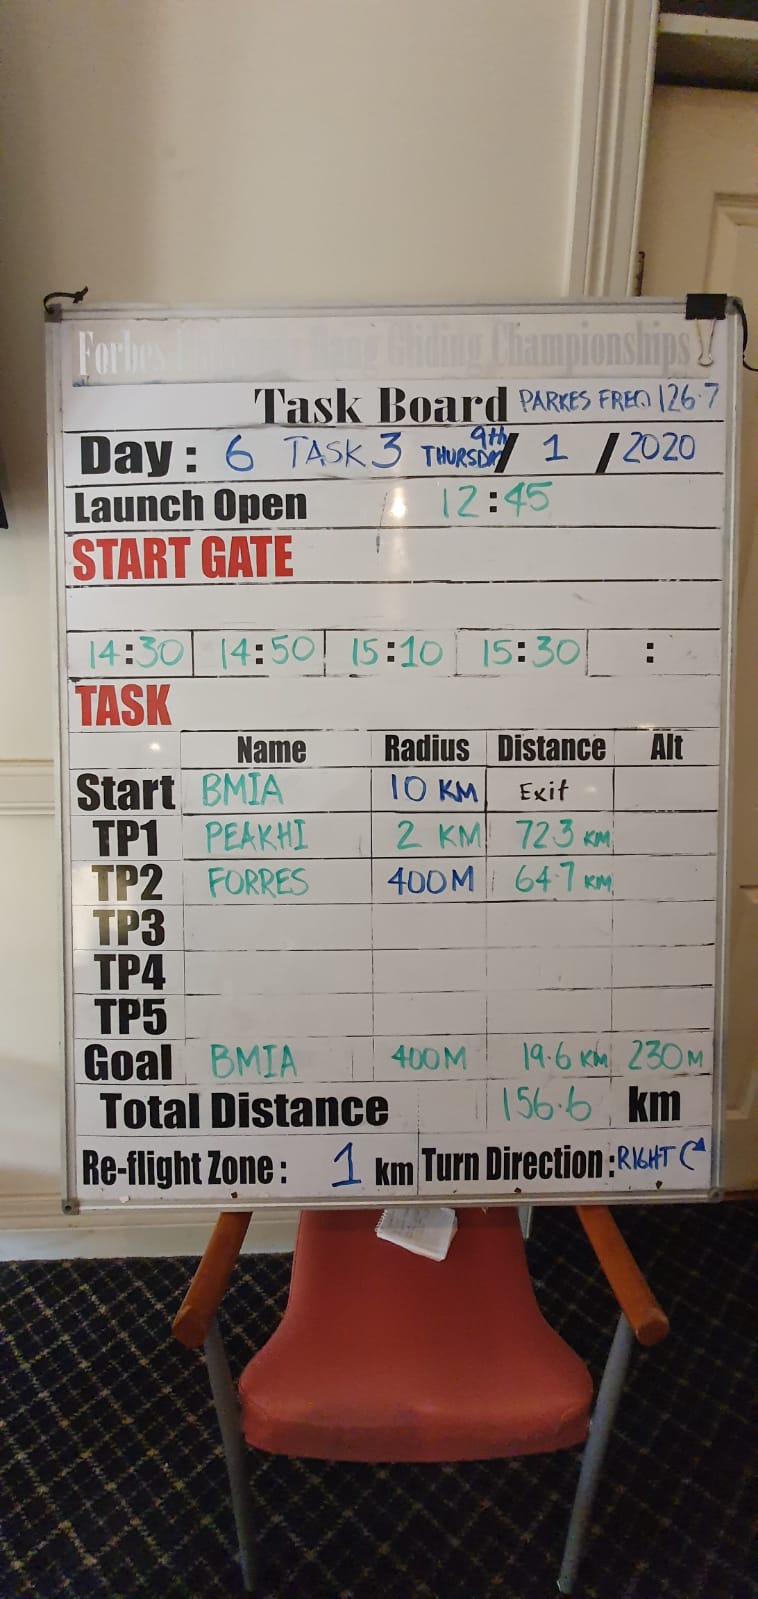 Forbes Hang Gliding Championships
Task Board PARKES FREQ 126.7
Day: 6 TASK 3 THURSDAY 9th / 1 / 2020
Launch Open 12:45
START GATE
14:30 14:50 15:10 15:30 :
TASK
Name Radius Distance Alt
Start BMIA 10 KM Exit
TP1 PEAKHI 2 KM 72.3 KM
TP2 FORRES 400M 64.7 KM
TP3
TP4
TP5
Goal BMIA 400M 19.6 KM 230M
Total Distance 156.6 km
Re-flight Zone: 1 km Turn Direction: RIGHT